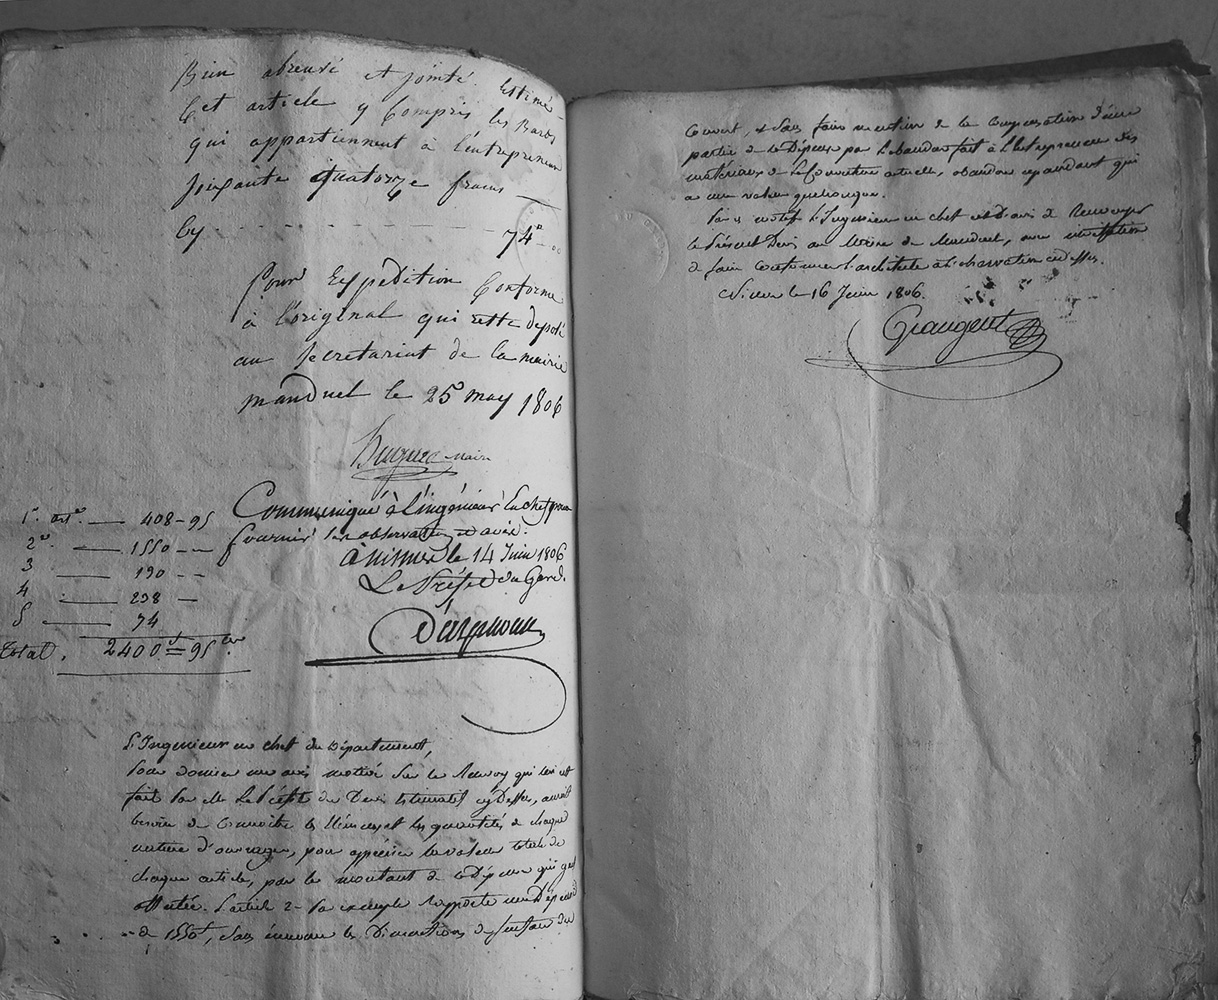 Bien abreuvé et jointé Estimé
Cet article y Compris les Bards
qui appartiennent à l'entrepreneur
soixante quatorze francs
Cy - - - 74 - 00
Pour Expédition Conforme
à l'original qui reste deposé
au secretariat de la mairie
manduel le 25 may 1806
maire
Communiqué à l'ingénieur En chef pour
fournir ses observations et avis.
à Nismes le 14 Juin 1806
Le Préfet du Gard.
1er. art. — 408 - 95
2e. — 1550 - -
3 — 190 - -
4 — 238 -
5 — 74
Total. 2400 = 95
L'Ingenieur en chef du Département,
pour donner un avis motivé sur le Renvoy qui lui est
fait par M. le Préfet du Devis Estimatif cy Dessus, aurait
besoin de Connoitre les Elémens et les quantités de chaque
nature d'ouvrages, pour apprécier la valeur totale de
chaque article, par le montant de la Dépense qui y est
affectée. L'article 2 par exemple rapporte une Dépense
de 1550f, sans énoncer les Dimentions de surface du
Couvert, & sans faire mention de la Compensation d'une
partie de la Dépense par l'abandon fait à l'Entrepreneur des
matériaux de la Couverture actuelle, abandon cependant qui
a une valeur quelconque.
Par ces motifs l'Ingenieur en chef est d'avis de Renvoyer
le Présent Devis au Maire de Manduel, avec invitation
de faire Conformer l'architecte à l'observation cy dessus.
Nismes le 16 Juin 1806.
Grangent